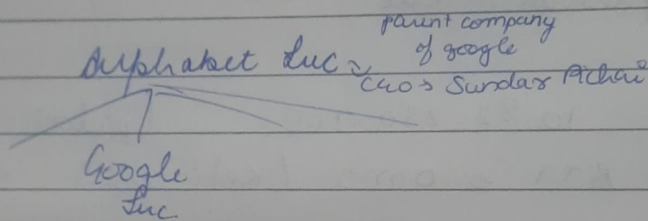 Alphabet Inc ~ parent company
of google
CEO > Sundar Pichai
Google
Inc